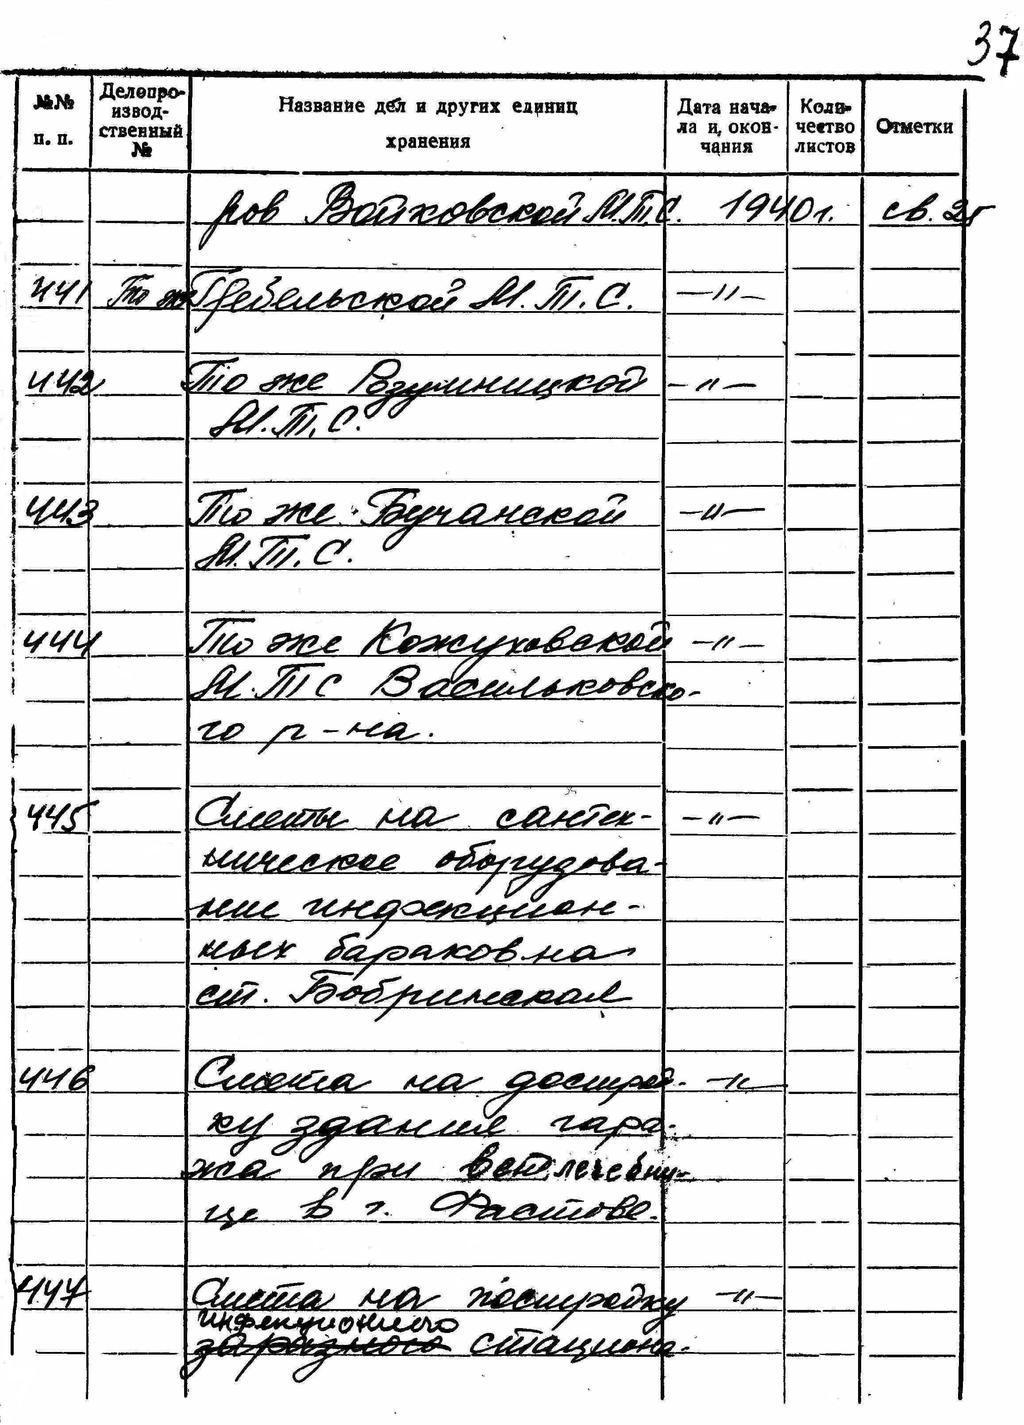 37
№№ п. п. Делопроизводственный № Название дел и других единиц хранения Дата начала и окончания Количество листов Отметки
ров Войковской М.Т.С. 1940 г. св. 25
441 То же Гребельской М.Т.С. —"—
442 То же Розумницкой —"—
М.Т.С.
443 То же Бучанской —"—
М.Т.С.
444 То же Кожуховской —"—
М.Т С Васильковско-
го р-на.
445 Сметы на сантех- —"—
ническое оборудова-
ние инфекцион-
ных бараков на
ст. Бобринская
446 Смета на построй- —"—
ку здания гара-
жа при ветлечебни-
це в г. Фастове.
447 Смета на постройку —"—
инфекционного
заразного стациона-